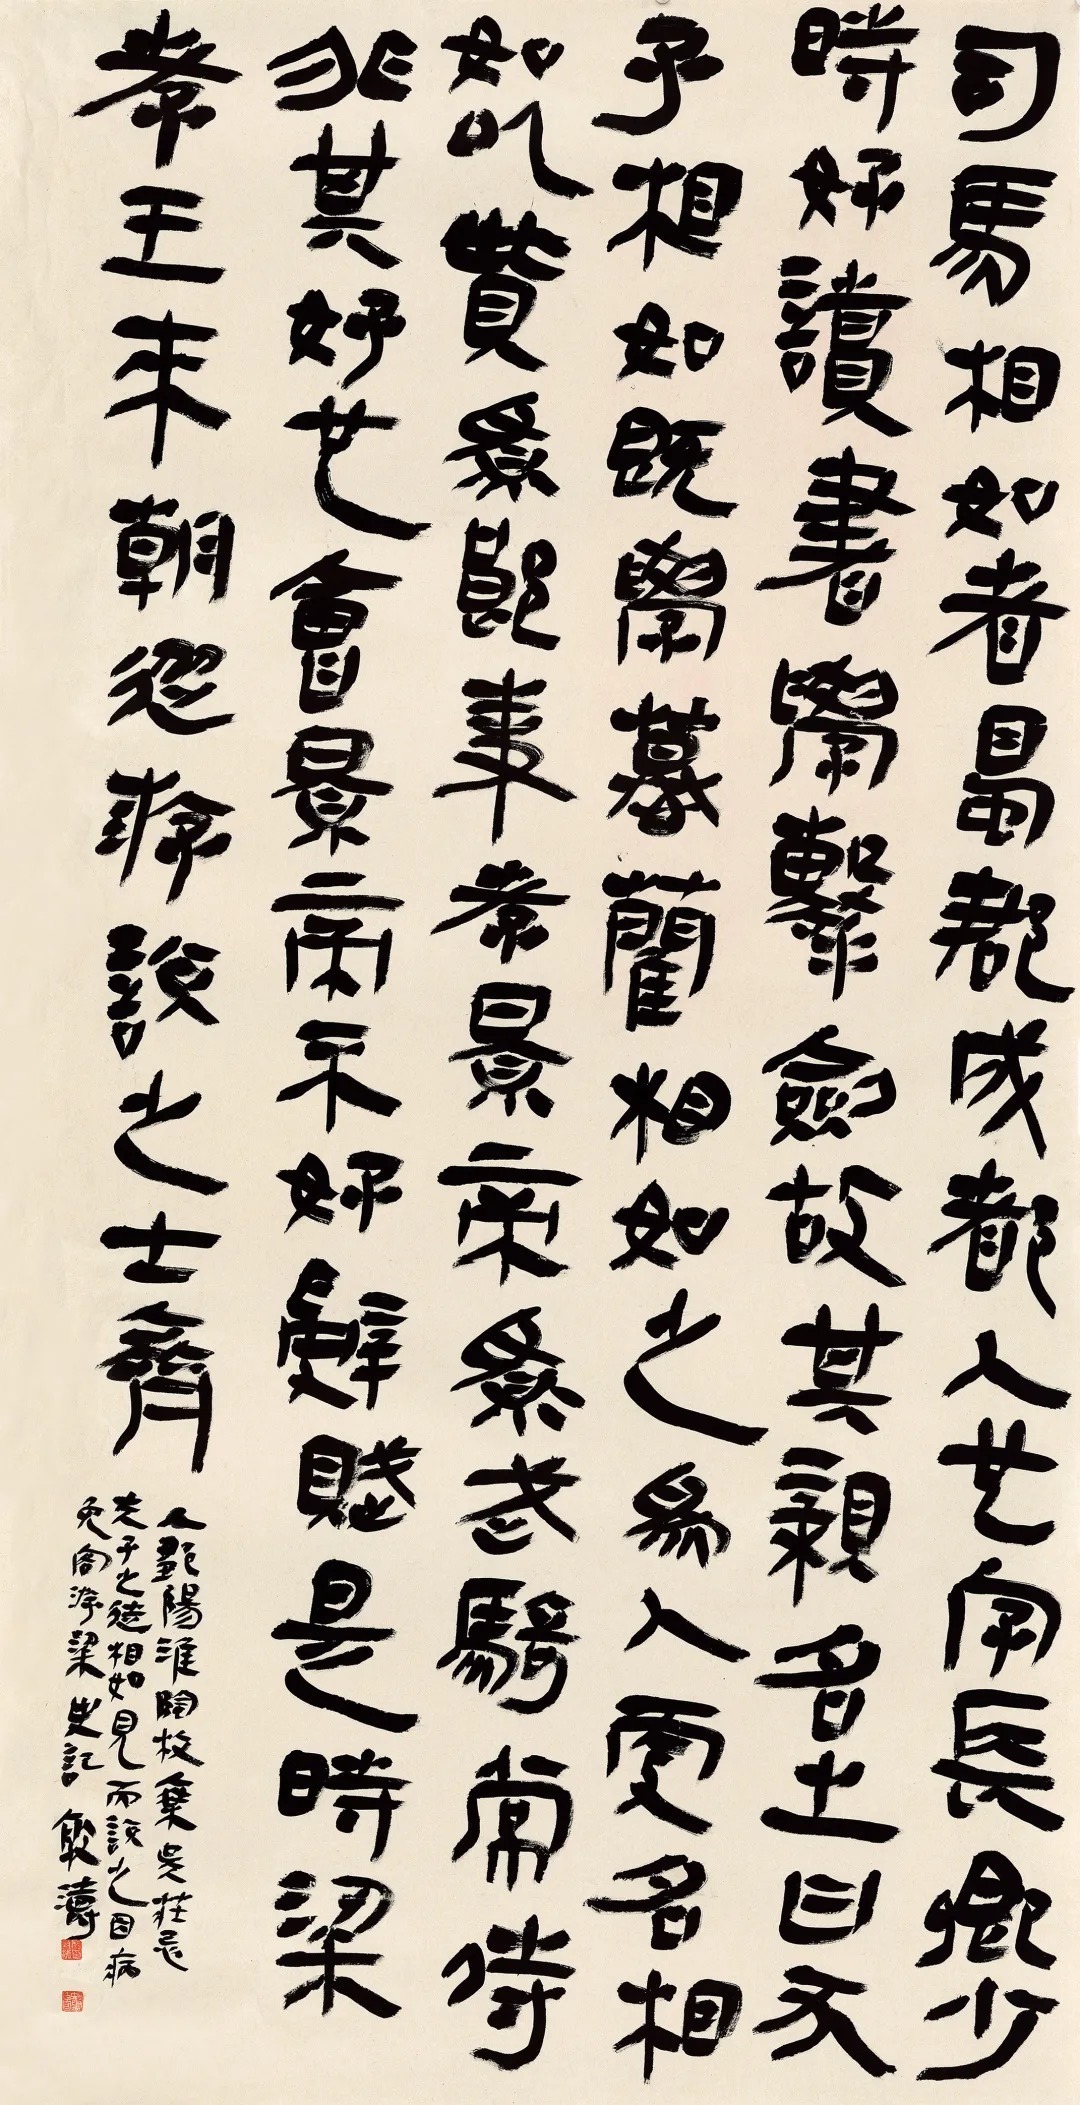 司馬相如者蜀郡成都人也字長卿少
時好讀書學擊劍故其親名之曰犬
子相如既學慕藺相如之為人更名相
如以貲為郎事孝景帝為武騎常侍
非其好也會景帝不好辭賦是時梁
孝王來朝從游說之士齊
人鄒陽淮陰枚乘吳莊忌
夫子之徒相如見而說之因病
免客游梁史記